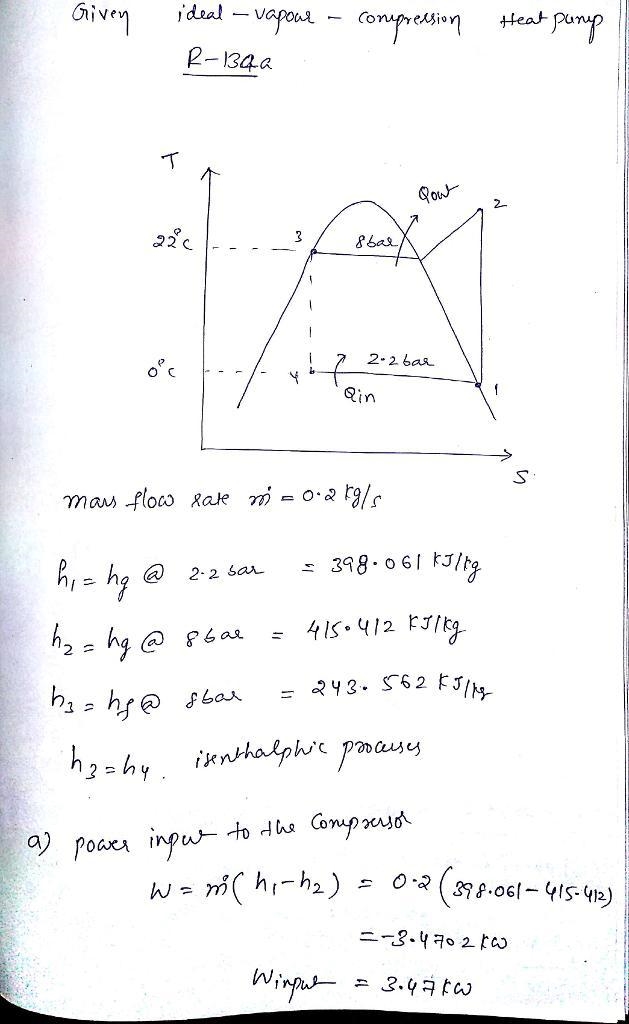 Given ideal - vapour - compression Heat pump
R-134a
T
Qout
2
22°c
3
8bar
0°c
4
2.2 bar
Qin
1
S
mass flow rate ṁ = 0.2 kg/s
h₁ = hg @ 2.2 bar = 398.061 KJ/kg
h₂ = hg @ 8bar = 415.412 KJ/kg
h₃ = hf @ 8bar = 243.562 KJ/kg
h₃ = h₄. isenthalphic processes
a) power input to the compressor
W = ṁ( h₁-h₂ ) = 0.2 (398.061 - 415.412)
= -3.4702 kW
Winput = 3.47 kW